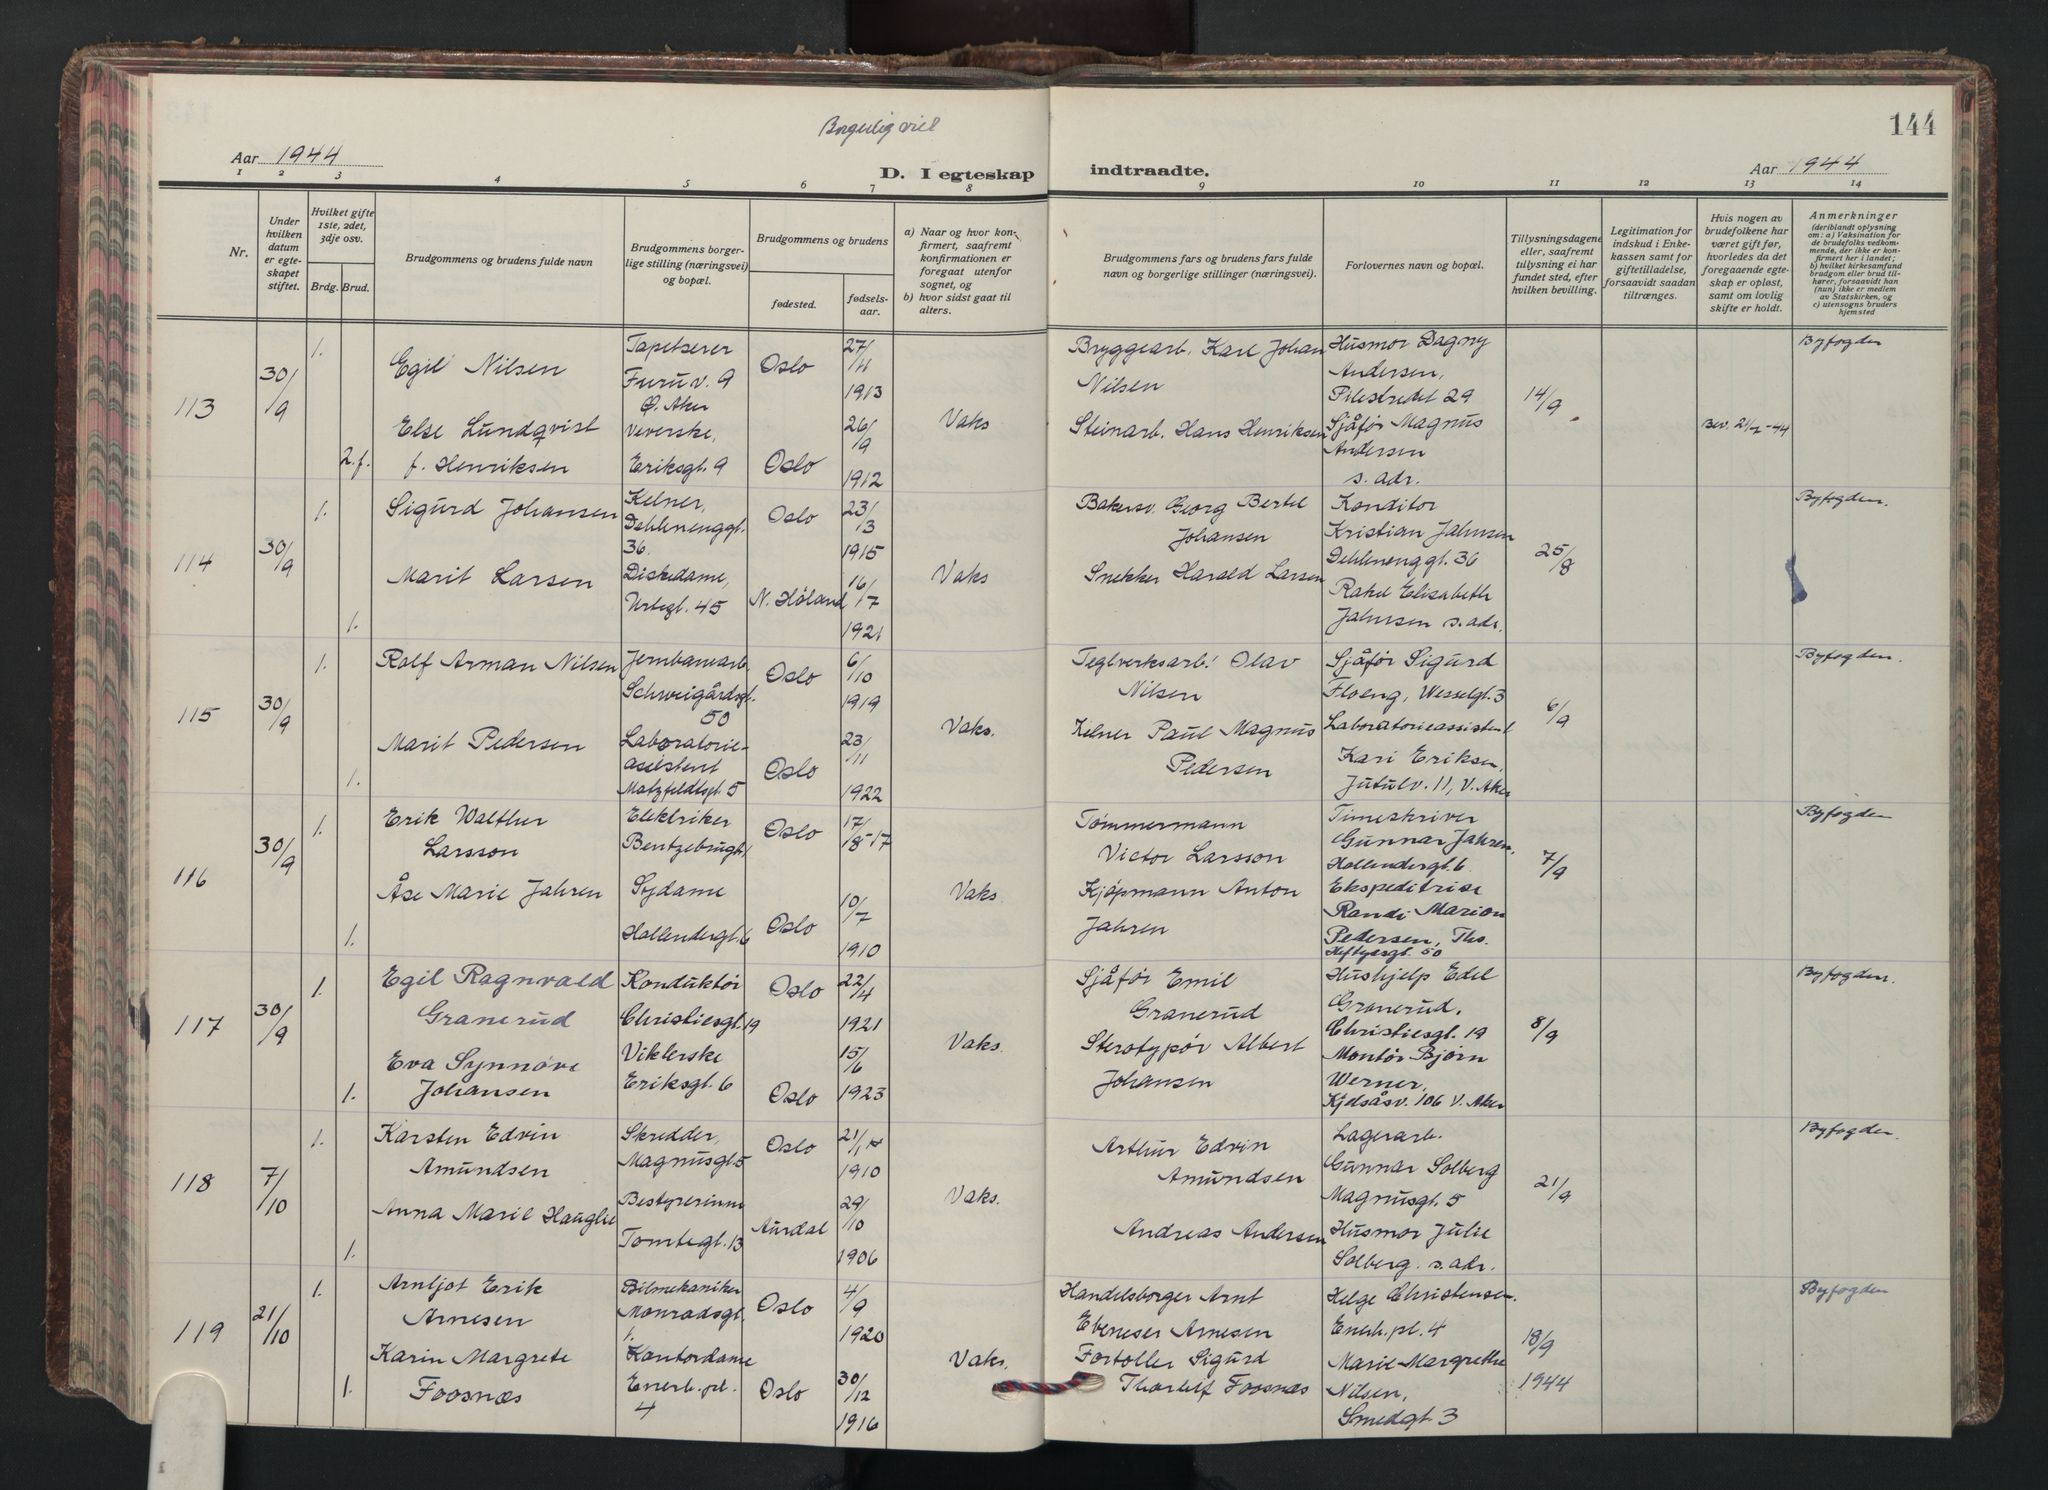 144
Borgerlig viet
Aar 1944
D. I egteskap indtraadte.
Aar 1944
1 2 3 4 5 6 7 8 9 10 11 12 13 14
Nr.
Under hvilken datum er egteskapet stiftet.
Hvilket gifte 1ste, 2det, 3dje osv.
Brdg. Brud.
Brudgommens og brudens fulde navn
Brudgommens borgerlige stilling (næringsvei) og bopæl.
Brudgommens og brudens
fødested.
fødselsaar.
a) Naar og hvor konfirmert, saafremt konfirmationen er foregaat utenfor sognet, og
b) hvor sidst gaat til alters.
Brudgommens fars og brudens fars fulde navn og borgerlige stillinger (næringsvei).
Forlovernes navn og bopæl.
Tillysningsdagene eller, saafremt tillysning ei har fundet sted, efter hvilken bevilling.
Legitimation for indskud i Enkekassen samt for giftetilladelse, forsaavidt saadan tiltrænges.
Hvis nogen av brudefolkene har været gift før, hvorledes da det foregaaende egteskap er opløst, samt om lovlig skifte er holdt.
Anmerkninger
(deriblandt oplysning om: a) Vaksination for de brudefolks vedkommende, der ikke er konfirmert her i landet; b) hvilket kirkesamfund brudgom eller brud tilhører, forsaavidt han (hun) ikke er medlem av Statskirken, og c) utensogns bruders hjemsted
113
30/9
1.
Egil Nilsen
Tapetserer
Furuv. 9
Ø. Aker
Oslo
27/11
1913
Bryggearb. Karl Johan
Nilsen
Husmor Dagny
Andersen,
Pilestredet 29
14/9
Byfogden
2. f.
Else Lundqvist
f. Henriksen
Veverske,
Eriksgt. 9
Oslo
26/9
1912
Vaks
Steinarb. Hans Henriksen
Sjåfør Magnus
Andersen
s. adr.
114
30/9
1.
Sigurd Johansen
Kelner,
Dehlenenggt.
36.
Oslo
23/3
1915
Bakersv. Georg Bertel
Johansen
Konditor
Kristian Jahnsen
Dehlenenggt. 36
25/8
Byfogden.
1.
Marit Larsen
Diskedame,
Urtegt. 45
N. Høland
16/7
1921
Vaks
Snekker Harald Larsen
Rakel Elisabeth
Jahnsen s. adr.
115
30/9
1.
Rolf Arman Nilsen
Jernbanearb.
Schweigårdsgt.
50
Oslo
6/10
1919
Teglverksarb. Olav
Nilsen
Sjåfør Sigurd
Floeng, Wesselgt. 3
6/9
Byfogden.
1.
Marit Pedersen
Laboratorie-
assistent
Motzfeldtsgt. 5
Oslo
23/11
1922
Vaks.
Kelner Paul Magnus
Pedersen
Laboratorieassistent
Kari Eriksen,
Jutulv. 11, V. Aker
116
30/9
1.
Erik Walther
Larsson
Elektriker
Oslo
17/8-17
Tømmermann
Victor Larsson
Timeskriver
Gunnar Jahren,
Hollendergt. 6
7/9
Byfogden
1.
Åse Marie Jahren
Sydame
Hollendergt. 6
Oslo
10/7
1910
Vaks.
Kjøpmann Anton
Jahren
Ekspeditrise
Randi Marion
Pedersen, Ths.
Heftyesgt. 50
117
30/9
1.
Egil Ragnvald
Granerud
Konduktør
Christiesgt. 19
Oslo
22/4
1921
Sjåfør Emil
Granerud
Hushjelp Edel
Granerud,
Christiesgt. 19
8/9
Byfogden.
1.
Eva Synnøve
Johansen
Viklerske
Eriksgt. 6
Oslo
15/6
1923
Vaks.
Sterotypør Albert
Johansen
Montør Bjørn
Werner,
Kjelsåsv. 106 V. Aker
118
7/10
1.
Karsten Edvin
Amundsen
Skredder,
Magnusgt. 5
Oslo
1910
Arthur Edvin
Amundsen
Lagerarb.
Gunnar Solberg
Magnusgt. 5
21/9
Byfogden.
1.
Anna Marie Hauglie
Bestyrerinne
Tomtegt. 13
Aurdal
29/10
1906
Vaks.
Andreas Andersen
Husmor Julie
Solberg. s. adr.
119
21/10
1.
Arnljot Erik
Arnesen
Bilmekaniker
Monradsgt.
1.
Oslo
4/9
1920
Handelsborger Arnt
Ebeneser Arnesen
Helge Christensen.
Enerh. pl. 4
18/9
1944
Byfogden
1.
Karin Margrete
Foosnæs
Kontordame
Enerh. pl.
4
Oslo
30/12
1916
Vaks.
Fortoller Sigurd
Thorleif Foosnæs
Marie Margrethe
Nilsen,
Smedgt. 3